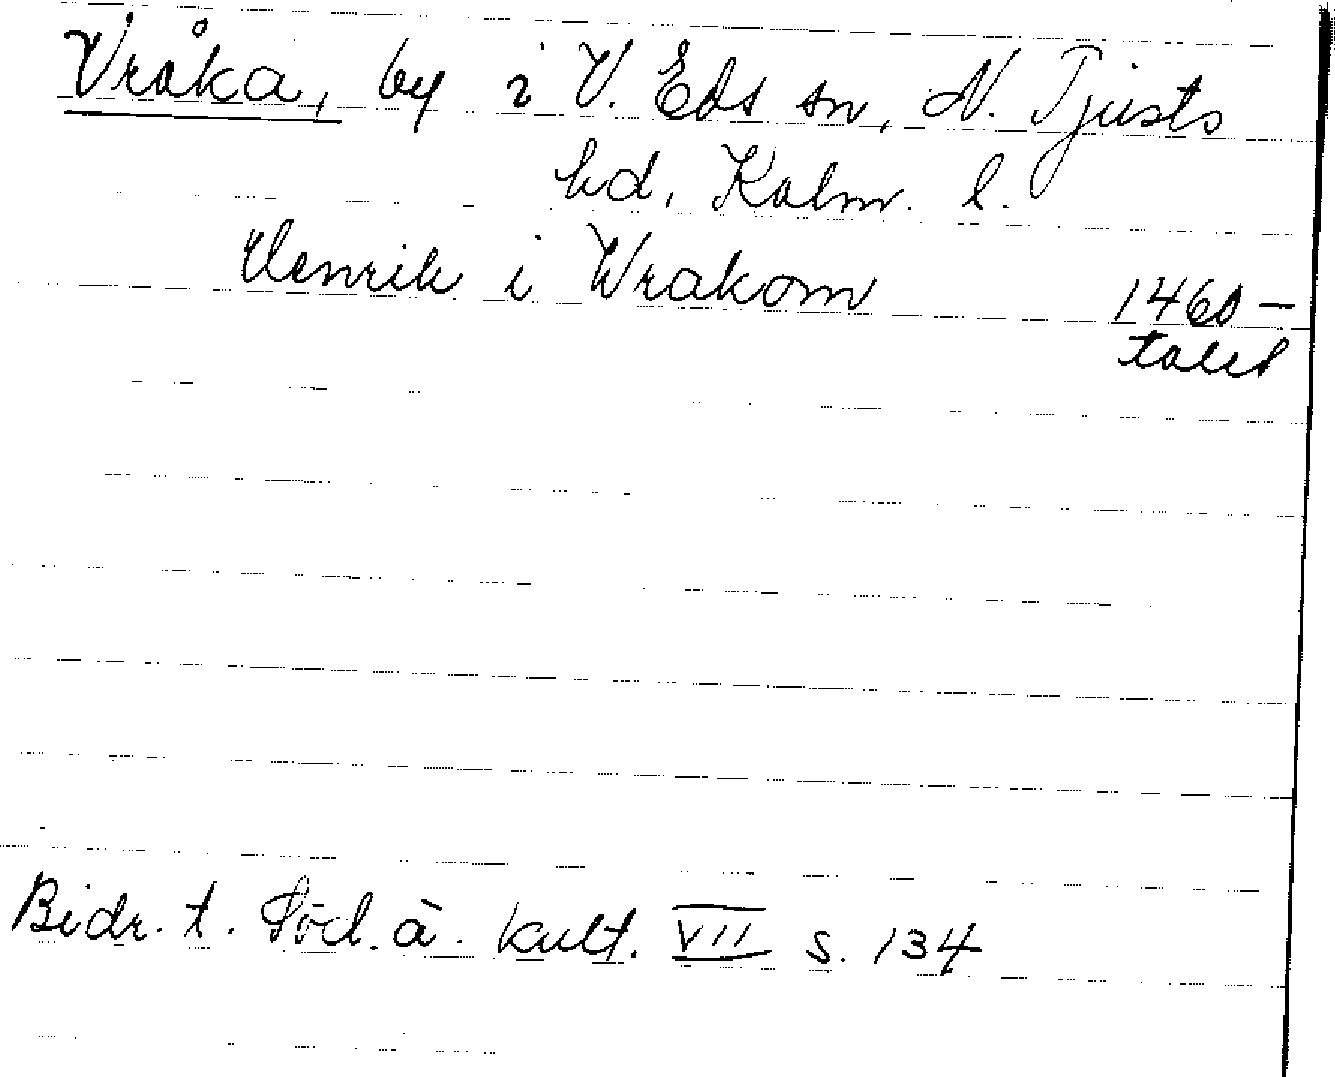 Vråka, by i V. Eds sn, N. Tjusts
hd, Kalm. l.
Henrik i Wrakom 1460-
talet
Bidr. t. Söd. ä. kult. VII s. 134